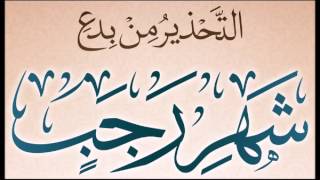 التَّحْذِيرُ مِنْ بِدَعِ
شَهْرِ رَجَبٍ